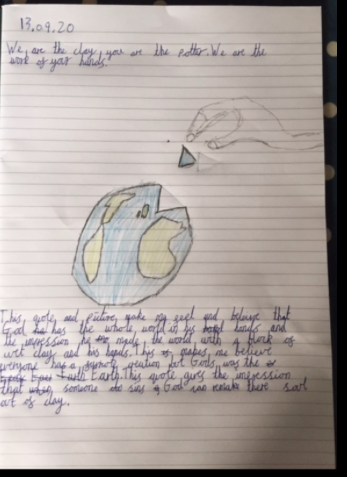 13.09.20
We are the clay, you are the potter. We are the
work of your hands.
This, quote, and picture, make my feel and beleive that
God has the whole world in his hands and
the impression he made the world with a block of
wet clay and his hands. This makes me believe
everyone has a creation but Gods was the
Earth. This quote gives the impression
that when someone sins God can remake there soul
out of clay.